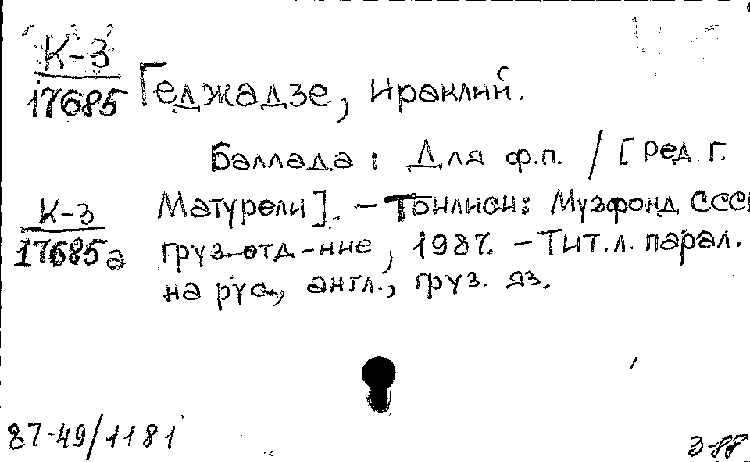 К-3
17685 Геджадзе, Ираклий.
Баллада : Для ф.п. / [Ред. Г.
К-3 Матурели]. — Тбилиси: Музфонд СССР
17685а груз. отд-ние, 1987. — Тит. л. парал.
на рус., англ., груз. яз.
87-49/1181
3-88